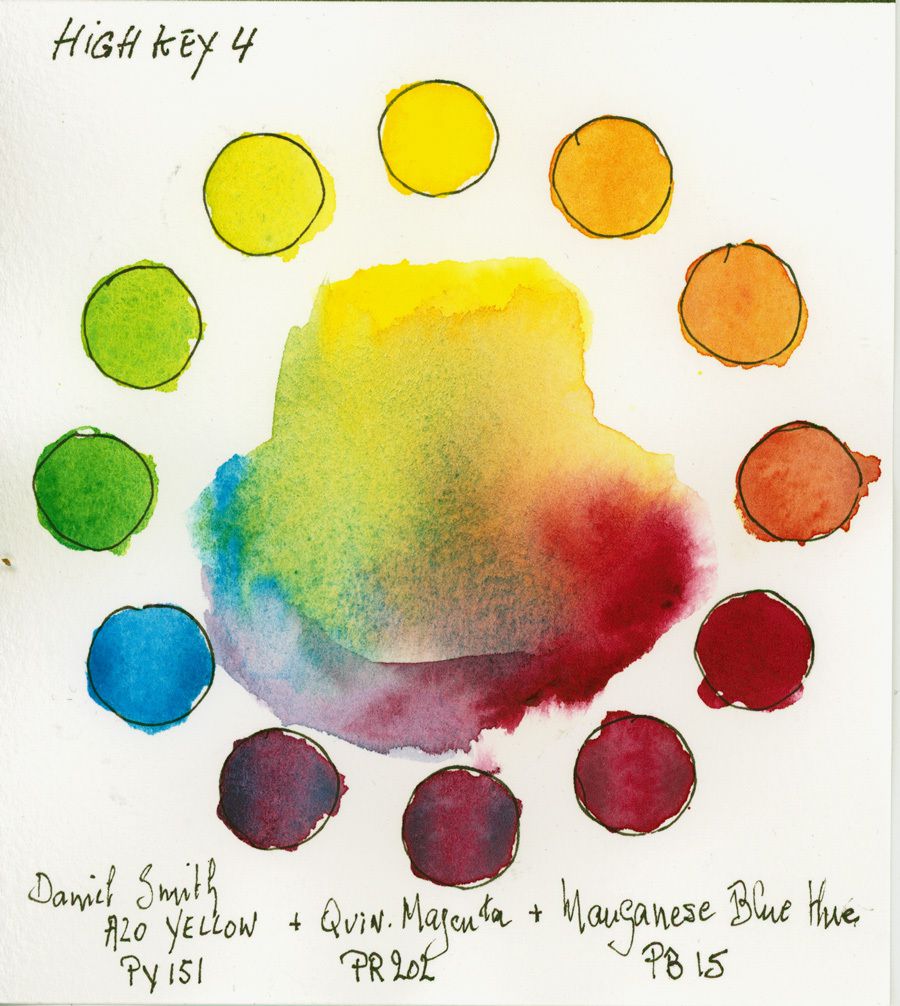 HiGH KEY 4
Daniel Smith
AZO YELLOW + QUIN. Magenta + Manganese Blue Hue
PY 151 PR 202 PB 15